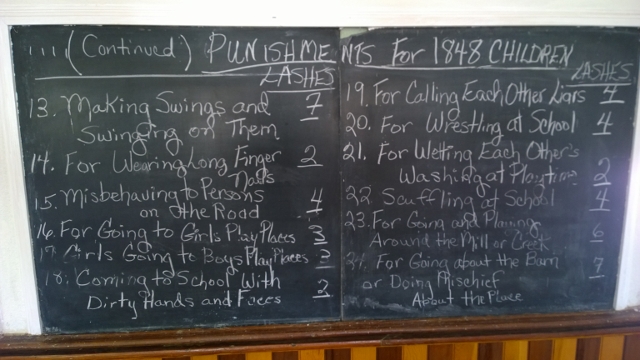 (Continued) PUNISHMENTS For 1848 CHILDREN
LASHES
13. Making Swings and 7
Swinging on Them
14. For Wearing Long Finger 2
Nails
15. Misbehaving to Persons 4
on the Road
16. For Going to Girls Play Places 3
17. Girls Going to Boys Play Places 3
18. Coming to School With 2
Dirty Hands and Faces
LASHES
19. For Calling Each Other Liars 4
20. For Wrestling at School 4
21. For Wetting Each Other's
Washing at Playtime 2
22 Scuffling at School 4
23. For Going and Playing 6
Around the Mill or Creek
For Going about the Barn 7
or Doing Mischief
About the Place